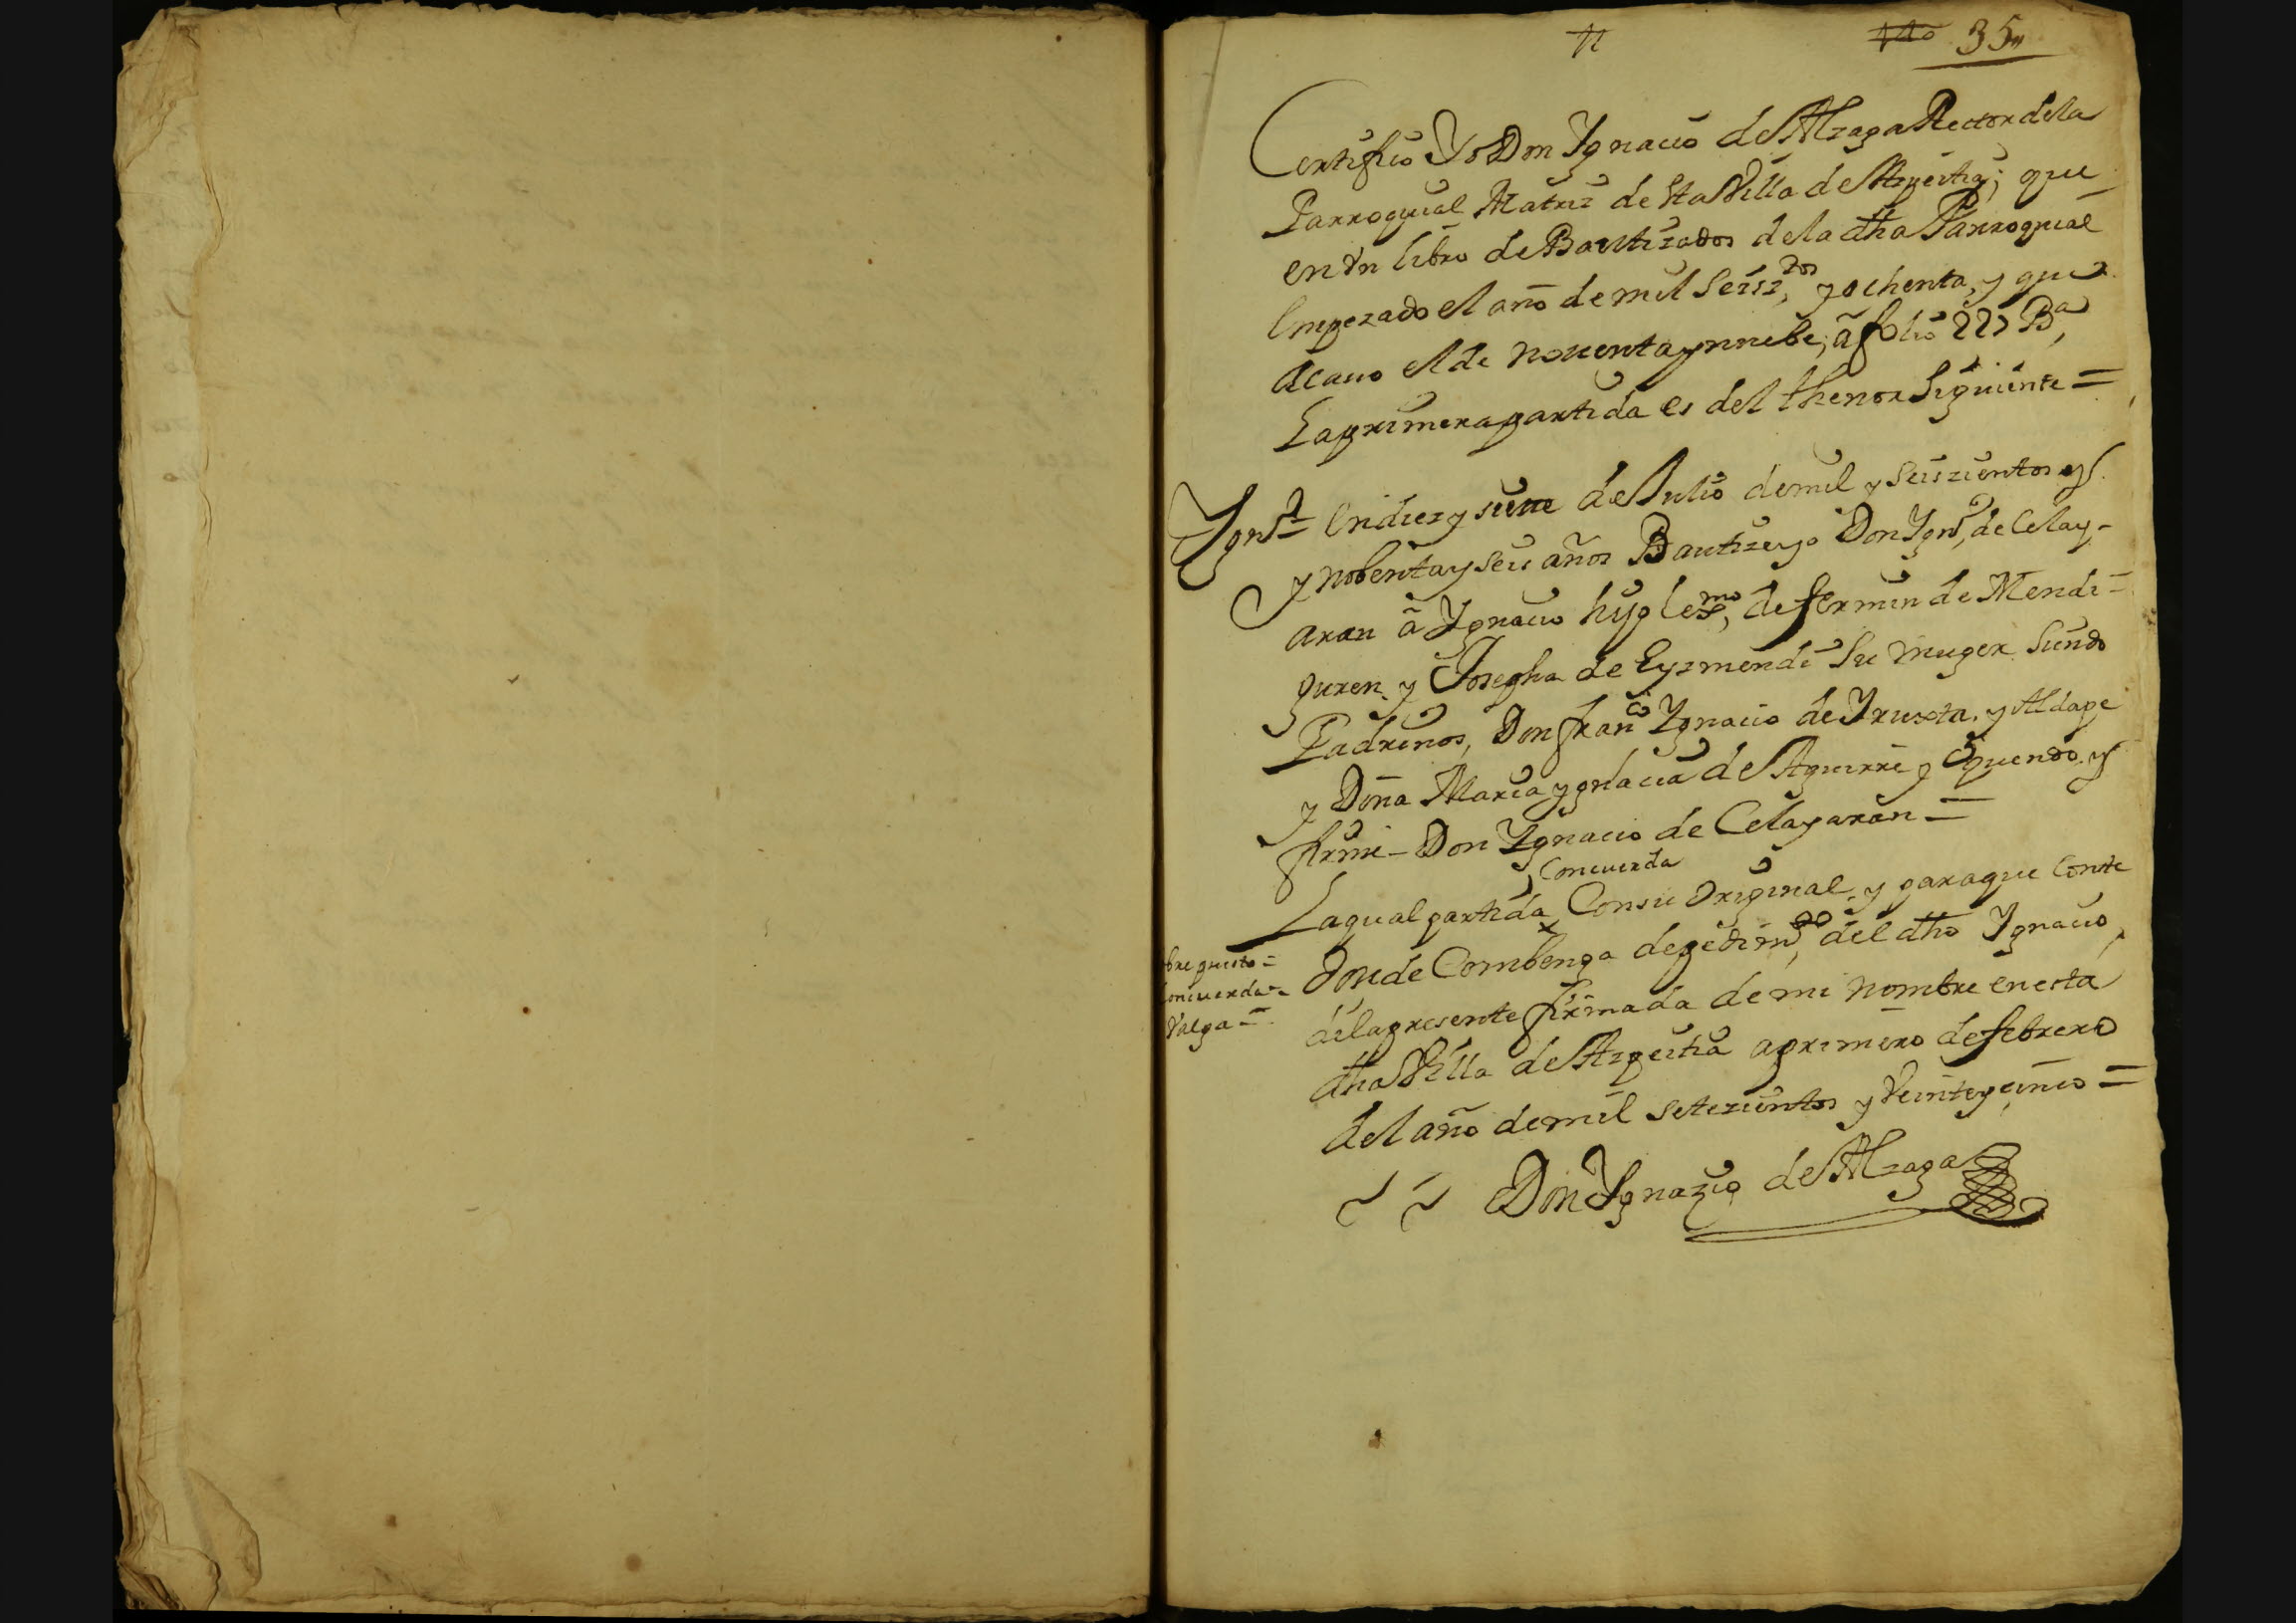 35
Certifico Yo Don Ygnacio de Alzaga Rector dela
Parroquial Matriz de sta Villa de Azpeitia; que
en Vn libro de Bautizados dela dha Parroquial
empezado el año de mil seisz.tos y ochenta, y que
acauo el de nouenta y nuebe, á folio 225 Ba,
La primera partida es del thenor siguiente =
Ygnº En diez y siete de Julio de mil y seiszientos y
y nobenta y seis años Bautize yo Don Ygnº, de Celay-
aran á Ygnacio hijo lexmo, de fermin de Mendi=
guren y Josepha de Eyzmendi su muger siendo
Padrinos, Don franco Ygnacio de Yruxta, y Aldape
y Doña Maria ygnacia de Aguirre y Oquendo y
firme - Don Ygnacio de Celayaran =
Concuerda
La qual partida Con su Original, y para que Conste
bre puesto =
donde Combenga de pedimto, del dho Ygnacio,
oncuerda =
di la presente firmada de mi nombre en esta
Valga =
dha Villa de Azpeitia a primero de febrero
del año de mil setezientos y Veinte y cinco =
Don Ygnazio de Alzaga